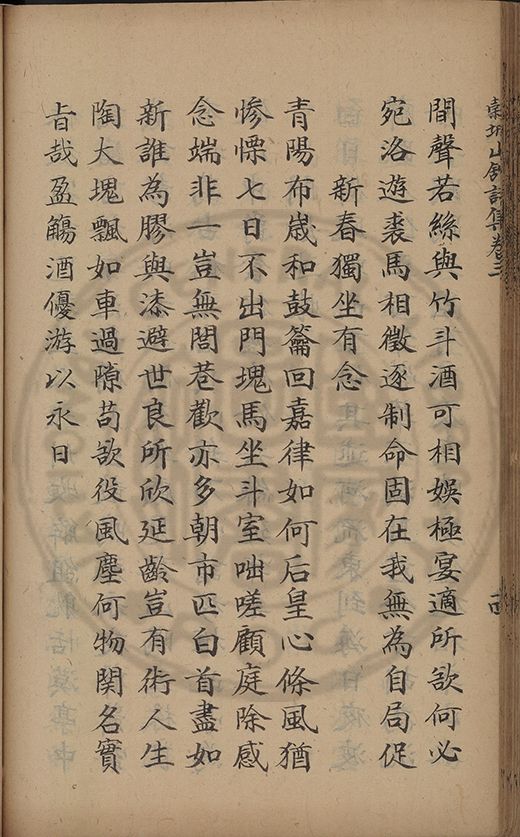 東山館詩集卷三
間聲若絲與竹斗酒可相娛極宴適所欲何必
宛洛遊裘馬相徵逐制命固在我無為自局促
新春獨坐有念
青陽布歲和鼓籥回嘉律如何后皇心條風猶
慘慄七日不出門塊馬坐斗室咄嗟顧庭除感
念端非一豈無閭巷歡亦多朝市匹白首盡如
新誰為膠與漆避世良所欣延齡豈有術人生
陶大塊飄如車過隙苟欲役風塵何物関名實
旨哉盈觴酒優游以永日